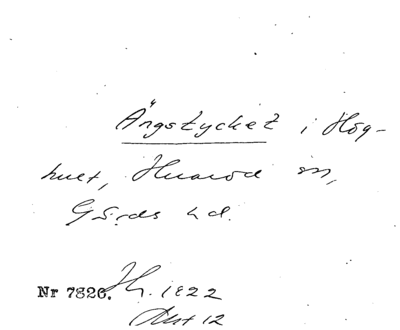 Ängstycket i Hög-
hult, Huaröd sn,
Gärds hd.
Nr 7826. 1822
Akt 12